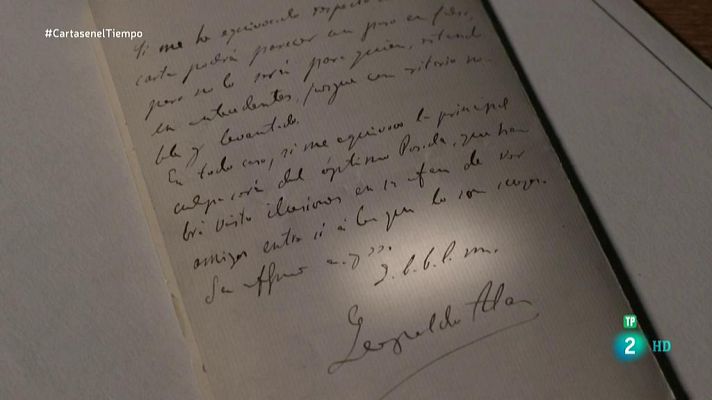 #CartasenelTiempo
Si me he equivocado respecto a
carta podrá parecer un paso en falso,
pero no lo será para quien, estando
en antecedentes, juzgue con criterio no-
ble y levantado.
En todo caso, si me equivoco la principal
culpa será del óptimo Posada, que ha-
brá visto ilusiones en su afan de ver
amigos entre sí á los que lo son suyos.
Su affmo amigo
q. l. b. l. m.
Leopoldo Alas
TP
2 HD